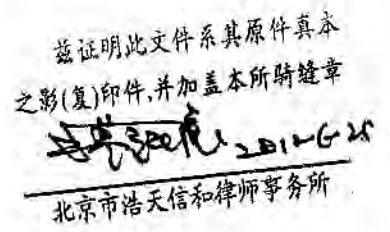 兹证明此文件系其原件真本
之影(复)印件,并加盖本所骑缝章
2012-6-25
北京市浩天信和律师事务所